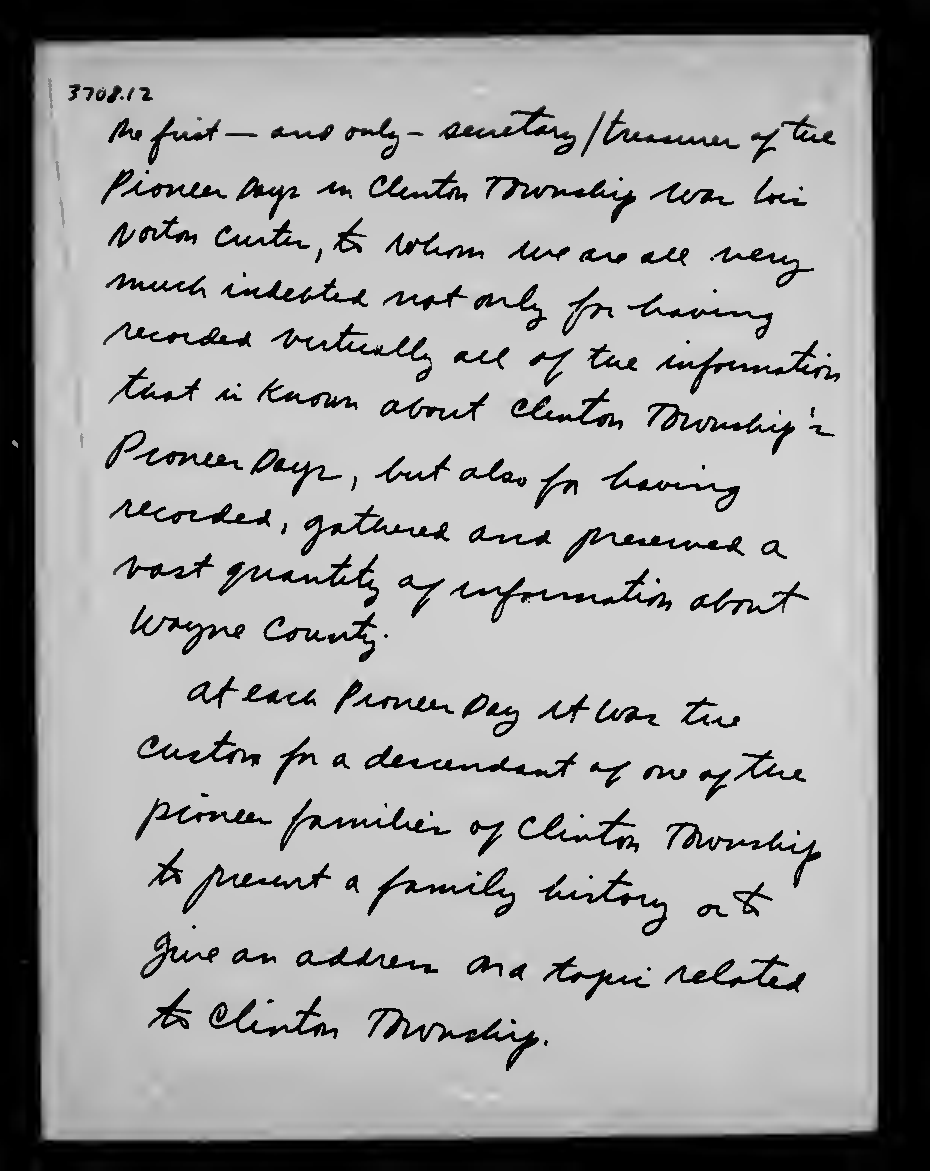 3708.12
The first — and only — secretary/treasurer of the
Pioneer Days in Clinton Township was Lois
Norton Custer, to whom we are all very
much indebted not only for having
recorded virtually all of the information
that is known about Clinton Township's
Pioneer Days, but also for having
recorded, gathered and preserved a
vast quantity of information about
Wayne County.
At each Pioneer Day it was the
custom for a descendant of one of the
pioneer families of Clinton Township
to present a family history or to
give an address on a topic related
to Clinton Township.